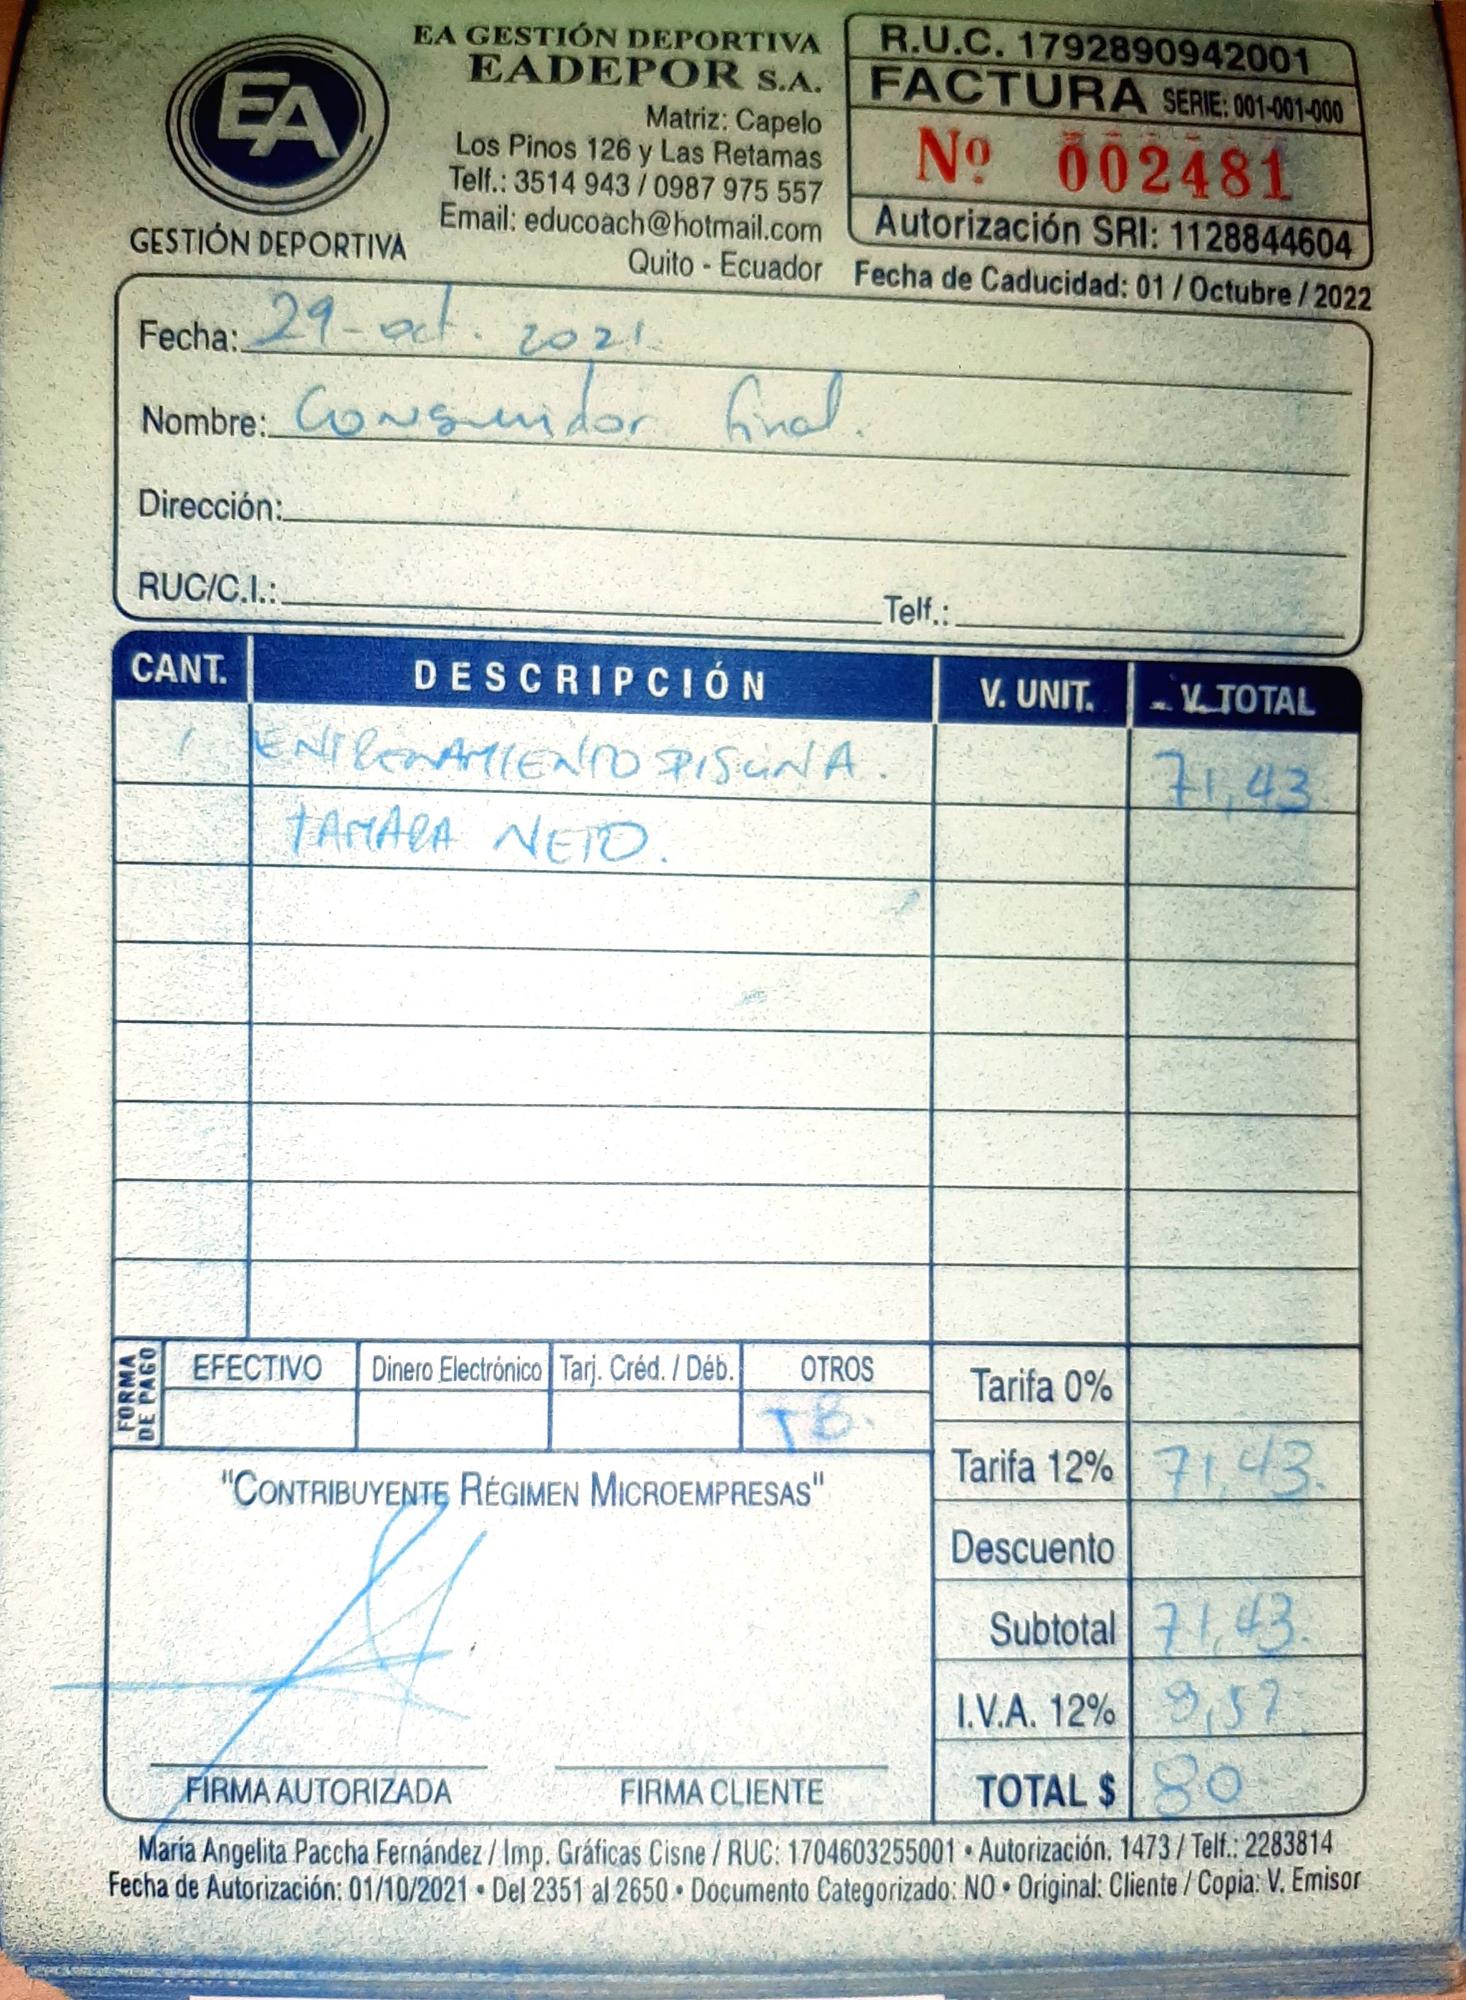 EA
GESTIÓN DEPORTIVA
EA GESTIÓN DEPORTIVA
EADEPOR S.A.
Matriz: Capelo
Los Pinos 126 y Las Retamas
Telf.: 3514 943 / 0987 975 557
Email: educoach@hotmail.com
Quito - Ecuador
R.U.C. 1792890942001
FACTURA SERIE: 001-001-000
Nº 002481
Autorización SRI: 1128844604
Fecha de Caducidad: 01 / Octubre / 2022
Fecha: 29-oct. 2021.
Nombre: Consumidor final.
Dirección:
RUC/C.I.: Telf.:
CANT. DESCRIPCIÓN V. UNIT. V. TOTAL
1 ENTRENAMIENTO PISCINA. 71,43
TAMARA NETO.
FORMA DE PAGO
EFECTIVO Dinero Electrónico Tarj. Créd. / Déb. OTROS
TB.
Tarifa 0%
Tarifa 12% 71,43.
Descuento
Subtotal 71,43.
I.V.A. 12%
TOTAL $ 80
"CONTRIBUYENTE RÉGIMEN MICROEMPRESAS"
FIRMA AUTORIZADA FIRMA CLIENTE
María Angelita Paccha Fernández / Imp. Gráficas Cisne / RUC: 1704603255001 • Autorización. 1473 / Telf.: 2283814
Fecha de Autorización: 01/10/2021 • Del 2351 al 2650 • Documento Categorizado: NO • Original: Cliente / Copia: V. Emisor